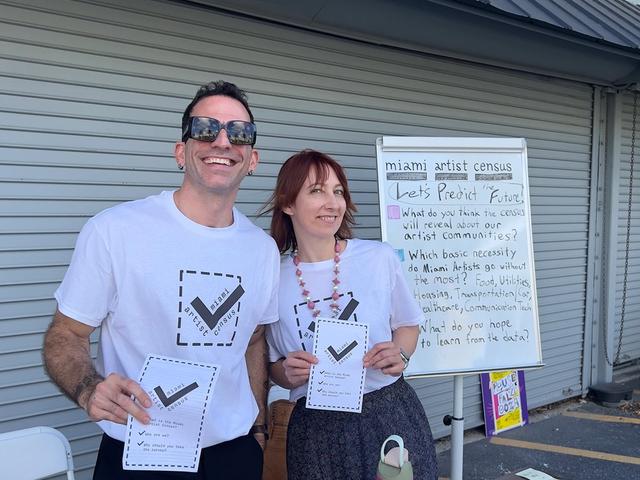 miami artist census
Let's Predict the Future!
What do you think the census
will reveal about our
artist communities?
Which basic necessity
do Miami Artists go without
the most? Food, Utilities,
Housing, Transportation/Car,
Healthcare, Communication Tech
What do you hope
to learn from the data?
miami
artist census
miami
artist census
miami
artist census
Who are we?
Why should you take
the survey?
miami